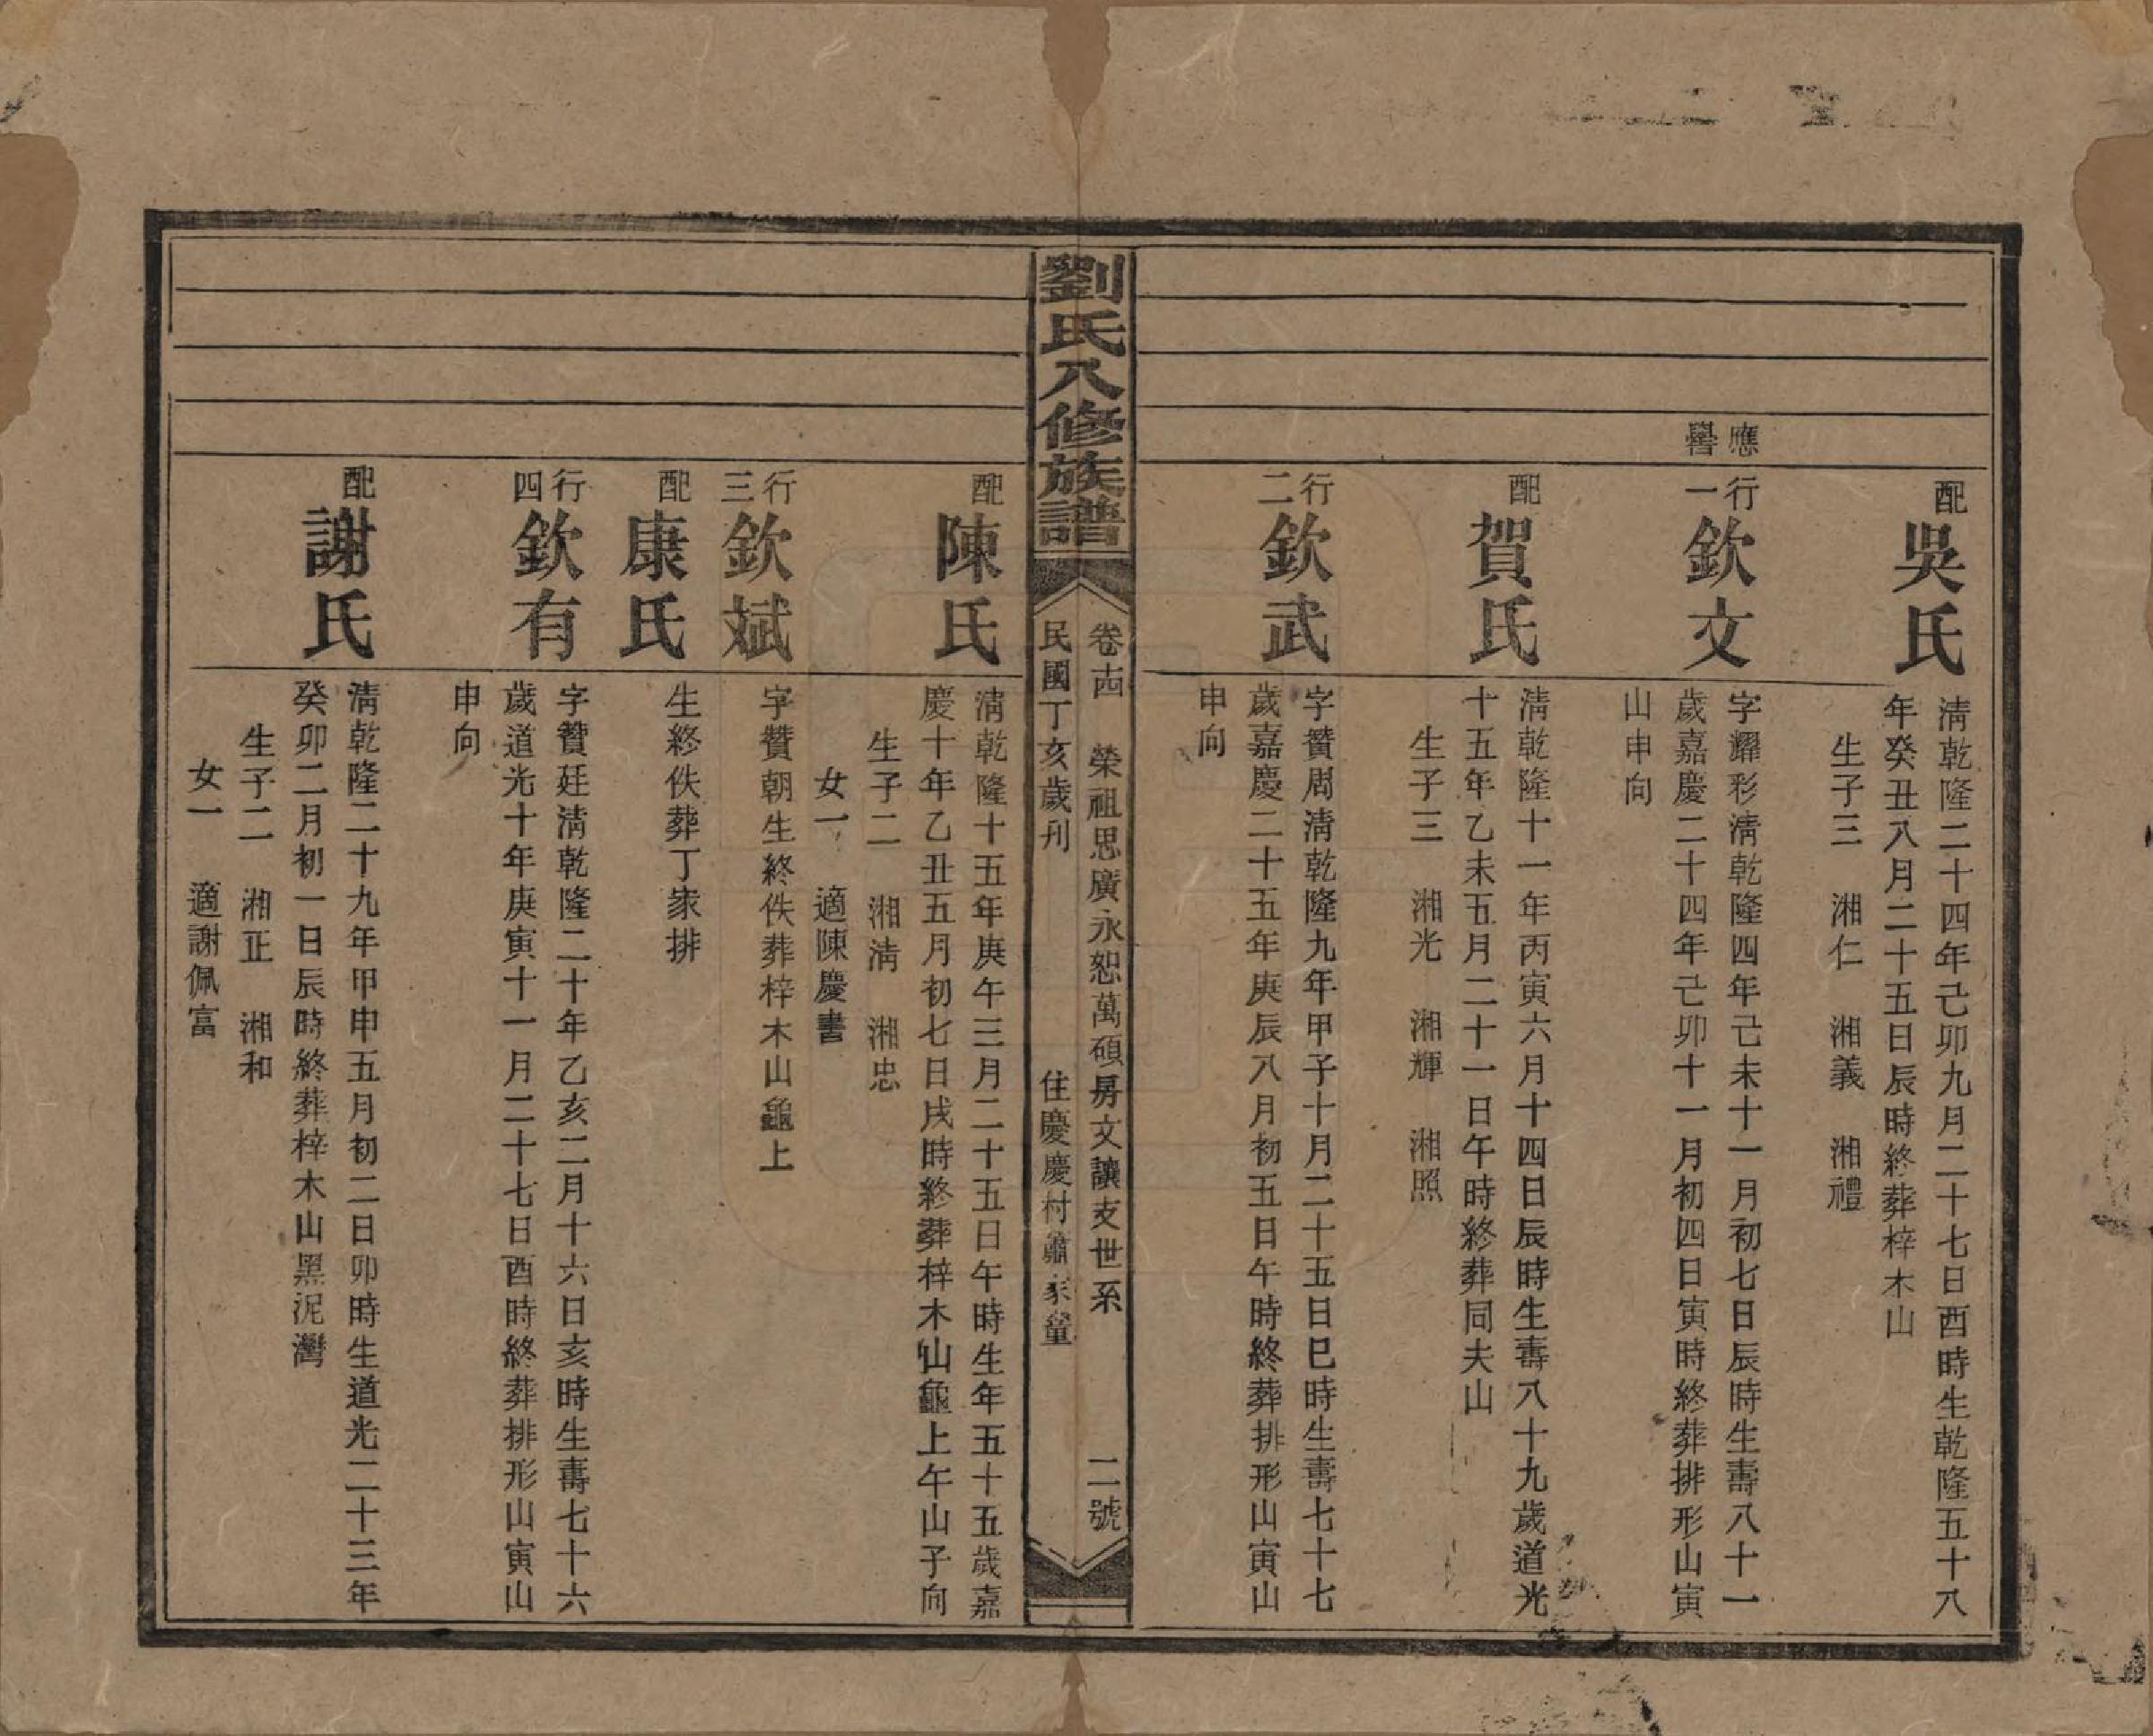 配
吳氏
淸乾隆二十四年己卯九月二十七日酉時生乾隆五十八
年癸丑八月二十五日辰時終葬梓木山
生子三 湘仁 湘義 湘禮
應譽
行一
欽文
字耀彩淸乾隆四年己未十一月初七日辰時生壽八十一
歲嘉慶二十四年己卯十一月初四日寅時終葬排形山寅
山申向
配
賀氏
淸乾隆十一年丙寅六月十四日辰時生壽八十九歲道光
十五年乙未五月二十一日午時終葬同夫山
生子三 湘光 湘輝 湘照
行二
欽武
字贊周淸乾隆九年甲子十月二十五日巳時生壽七十七
歲嘉慶二十五年庚辰八月初五日午時終葬排形山寅山
申向
劉氏八修族譜
卷十四 榮祖思廣永恕萬碩房文讓支世系 二號
民國丁亥歲刋 住慶慶村蕭家
配
陳氏
淸乾隆十五年庚午三月二十五日午時生年五十五歲嘉
慶十年乙丑五月初七日戌時終葬梓木山龜上午山子向
生子二 湘淸 湘忠
女一 適陳慶書
行三
欽斌
字贊朝生終佚葬梓木山龜上
配
康氏
生終佚葬丁家排
行四
欽有
字贊廷淸乾隆二十年乙亥二月十六日亥時生壽七十六
歲道光十年庚寅十一月二十七日酉時終葬排形山寅山
申向
配
謝氏
淸乾隆二十九年甲申五月初二日卯時生道光二十三年
癸卯二月初一日辰時終葬梓木山黑泥灣
生子二 湘正 湘和
女一 適謝佩富